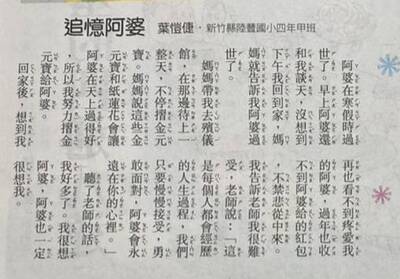 追憶阿婆 葉愷倢・新竹縣陸豐國小四年甲班
阿婆在寒假時過
世了。早上阿婆還
和我談天，沒想到
下午我回到家，媽
媽就告訴我阿婆過
世了。
媽媽帶我去殯儀
館，在那邊待上一
整天，不停摺金元
寶。媽媽說這些金
元寶和紙蓮花會讓
阿婆在天上過得好
，所以我努力摺金
元寶給阿婆。
回家後，想到我
再也看不到疼愛我
的阿婆，過年也收
不到阿婆給的紅包
，不禁悲從中來。
我告訴老師我很難
受，老師說：「這
是每個人都會經歷
的人生過程，我們
只要慢慢接受，勇
敢面對，阿婆會永
遠在你的心裡。」
聽了老師的話，
我好多了。我很想
阿婆，阿婆也一定
很想我。